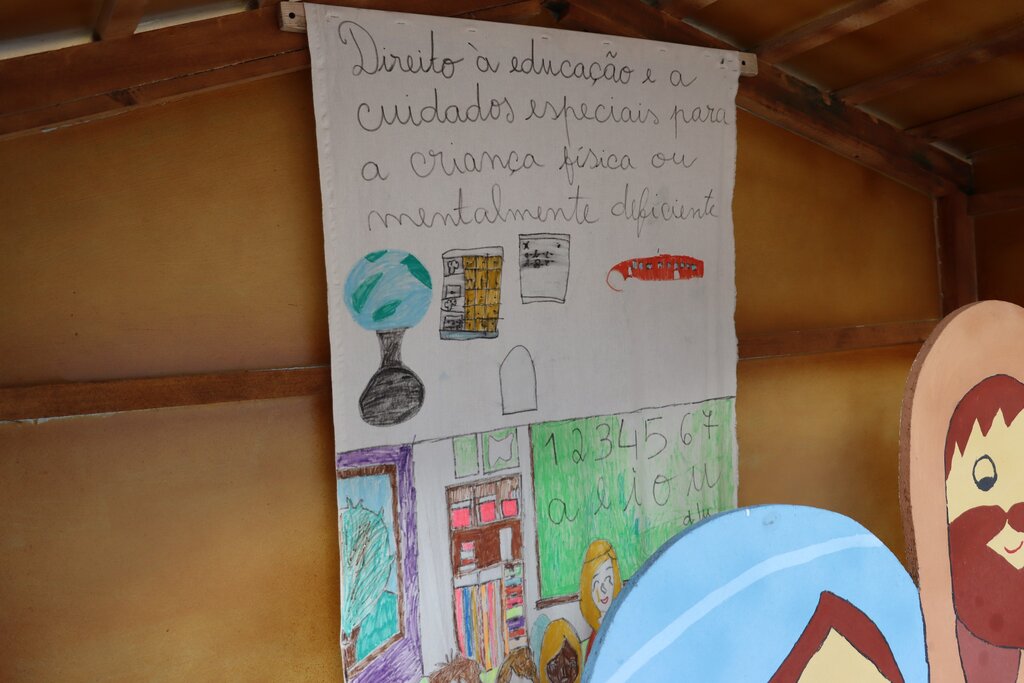 Direito à educação e a
cuidados especiais para
a criança física ou
mentalmente deficiente
1 2 3 4 5 6 7
a e i o u